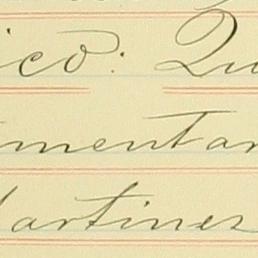 ico: Qu
mentar
artines